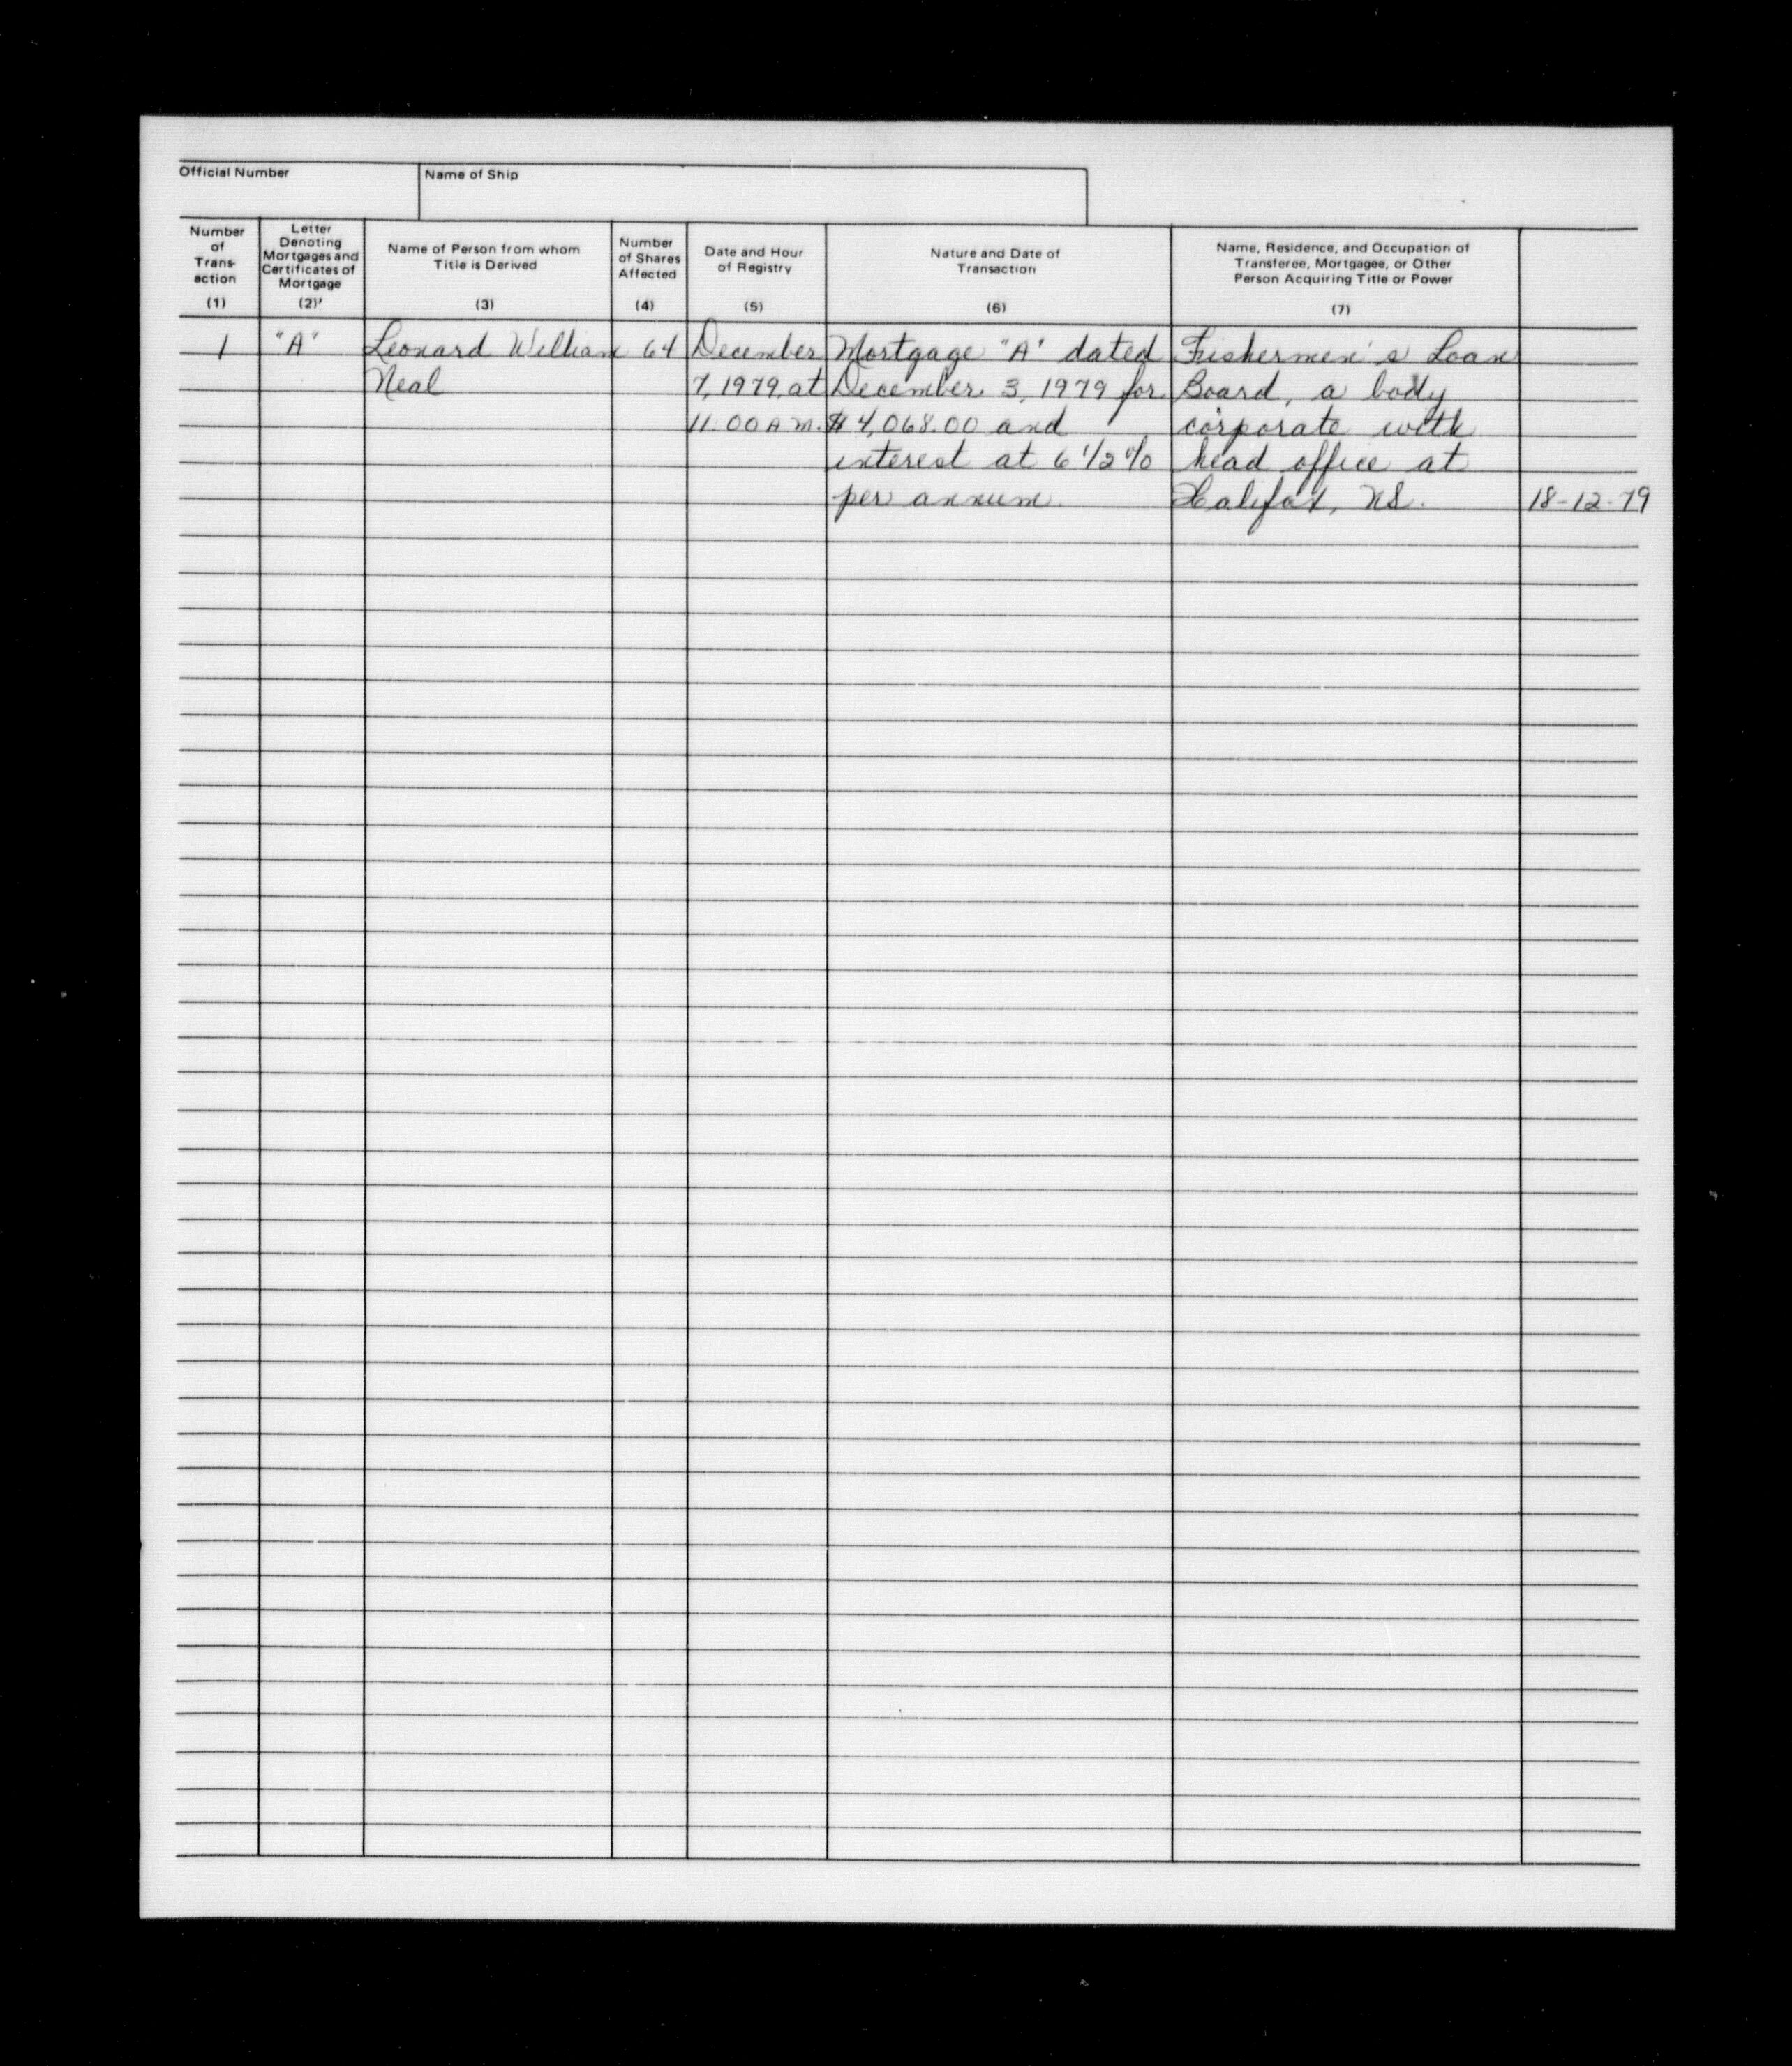 Official Number Name of Ship
Number of Trans- action (1)
Letter Denoting Mortgages and Certificates of Mortgage (2)
Name of Person from whom Title is Derived (3)
Number of Shares Affected (4)
Date and Hour of Registry (5)
Nature and Date of Transaction (6)
Name, Residence, and Occupation of Transferee, Mortgagee, or Other Person Acquiring Title or Power (7)
1 "A" Leonard William 64 December Mortgage "A" dated Fishermen's Loan
Neal 7, 1979, at December 3, 1979 for Board, a body
11:00 A.M. $4,068.00 and corporate with
interest at 6 1/2 % head office at
per annum. Halifax, NS. 18-12-79